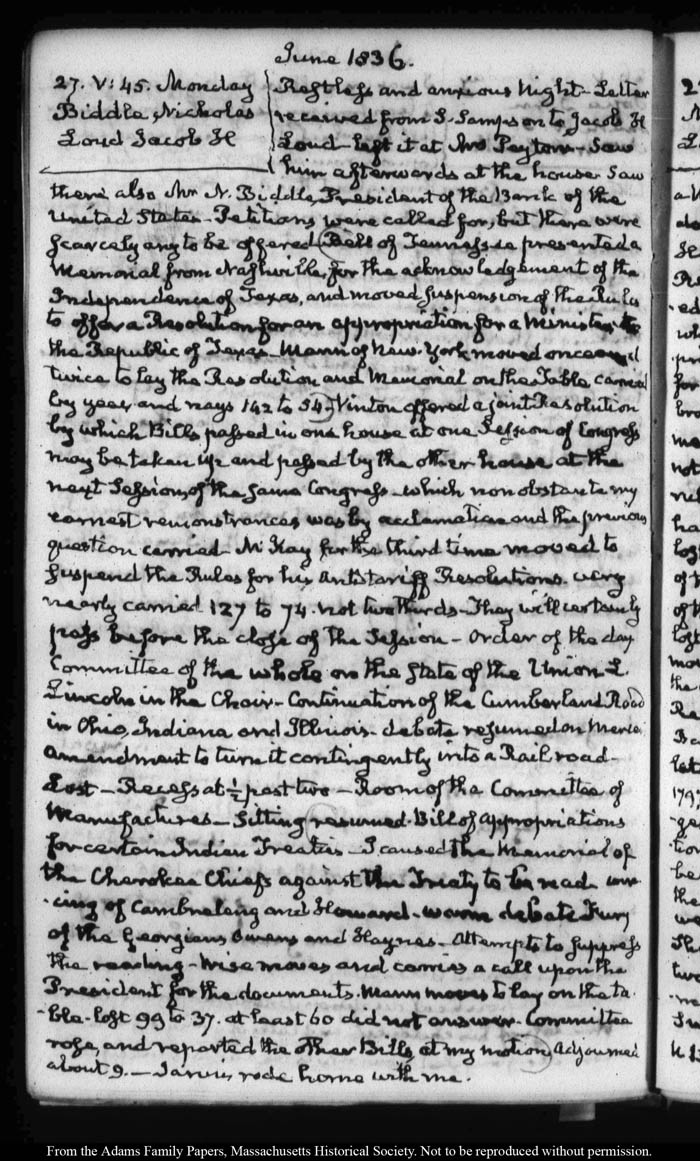 June 1836.
27. V:45. Monday
Biddle, Nicholas
Loud Jacob H
Restless and anxious Night - Letter
received from S. Sampson to Jacob H
Loud - left it at Mrs Peyton's - Saw
him afterwards at the house. Saw
there also Mr N. Biddle, President of the Bank of the
United States - Petitions were called for, but there were
scarcely any to be offered (Bell of Tennessee presented a
Memorial from Nashville, for the acknowledgement of the
Independence of Texas, and moved suspension of the Rules
to offer a Resolution for an appropriation for a Minister to
the Republic of Texas - Mann of New-York moved once and
twice to lay the Resolution and Memorial on the Table carried
by yeas and nays 142 to 54) Vinton offered a joint Resolution
by which Bills passed in one house at one Session of Congress
may be taken up and passed by the other house at the
next Session, of the same Congress - which non obstante my
earnest remonstrances was by acclamation and the previous
question carried - McKay for the third time moved to
suspend the Rules for his Antitariff Resolutions. very
nearly carried 127 to 74. not two thirds - They will certainly
pass before the close of the Session - Order of the day
Committee of the whole on the State of the Union L.
Lincoln in the Chair - Continuation of the Cumberland Road
in Ohio, Indiana and Illinois - debate resumed on
amendment to turn it contingently into a Rail road -
Lost - Recess at ½ past two - Room of the Committee of
Manufactures - Sitting resumed. Bill of appropriations
for certain Indian Treaties - I caused the Memorial of
the Cherokee Chiefs against the Treaty to be read
of Cambreleng and Howard - warm debate Fury
of the Georgians Owens and Haynes - Attempts to suppress
the reading - Wise moves and carries a call upon the
President for the documents. Mann moves to lay on the ta-
-ble - lost 99 to 37. at least 60 did not answer - Committee
rose, and reported the other Bills, at my motion, adjourned
about 9. - Jarvis, rode home with me.
From the Adams Family Papers, Massachusetts Historical Society. Not to be reproduced without permission.